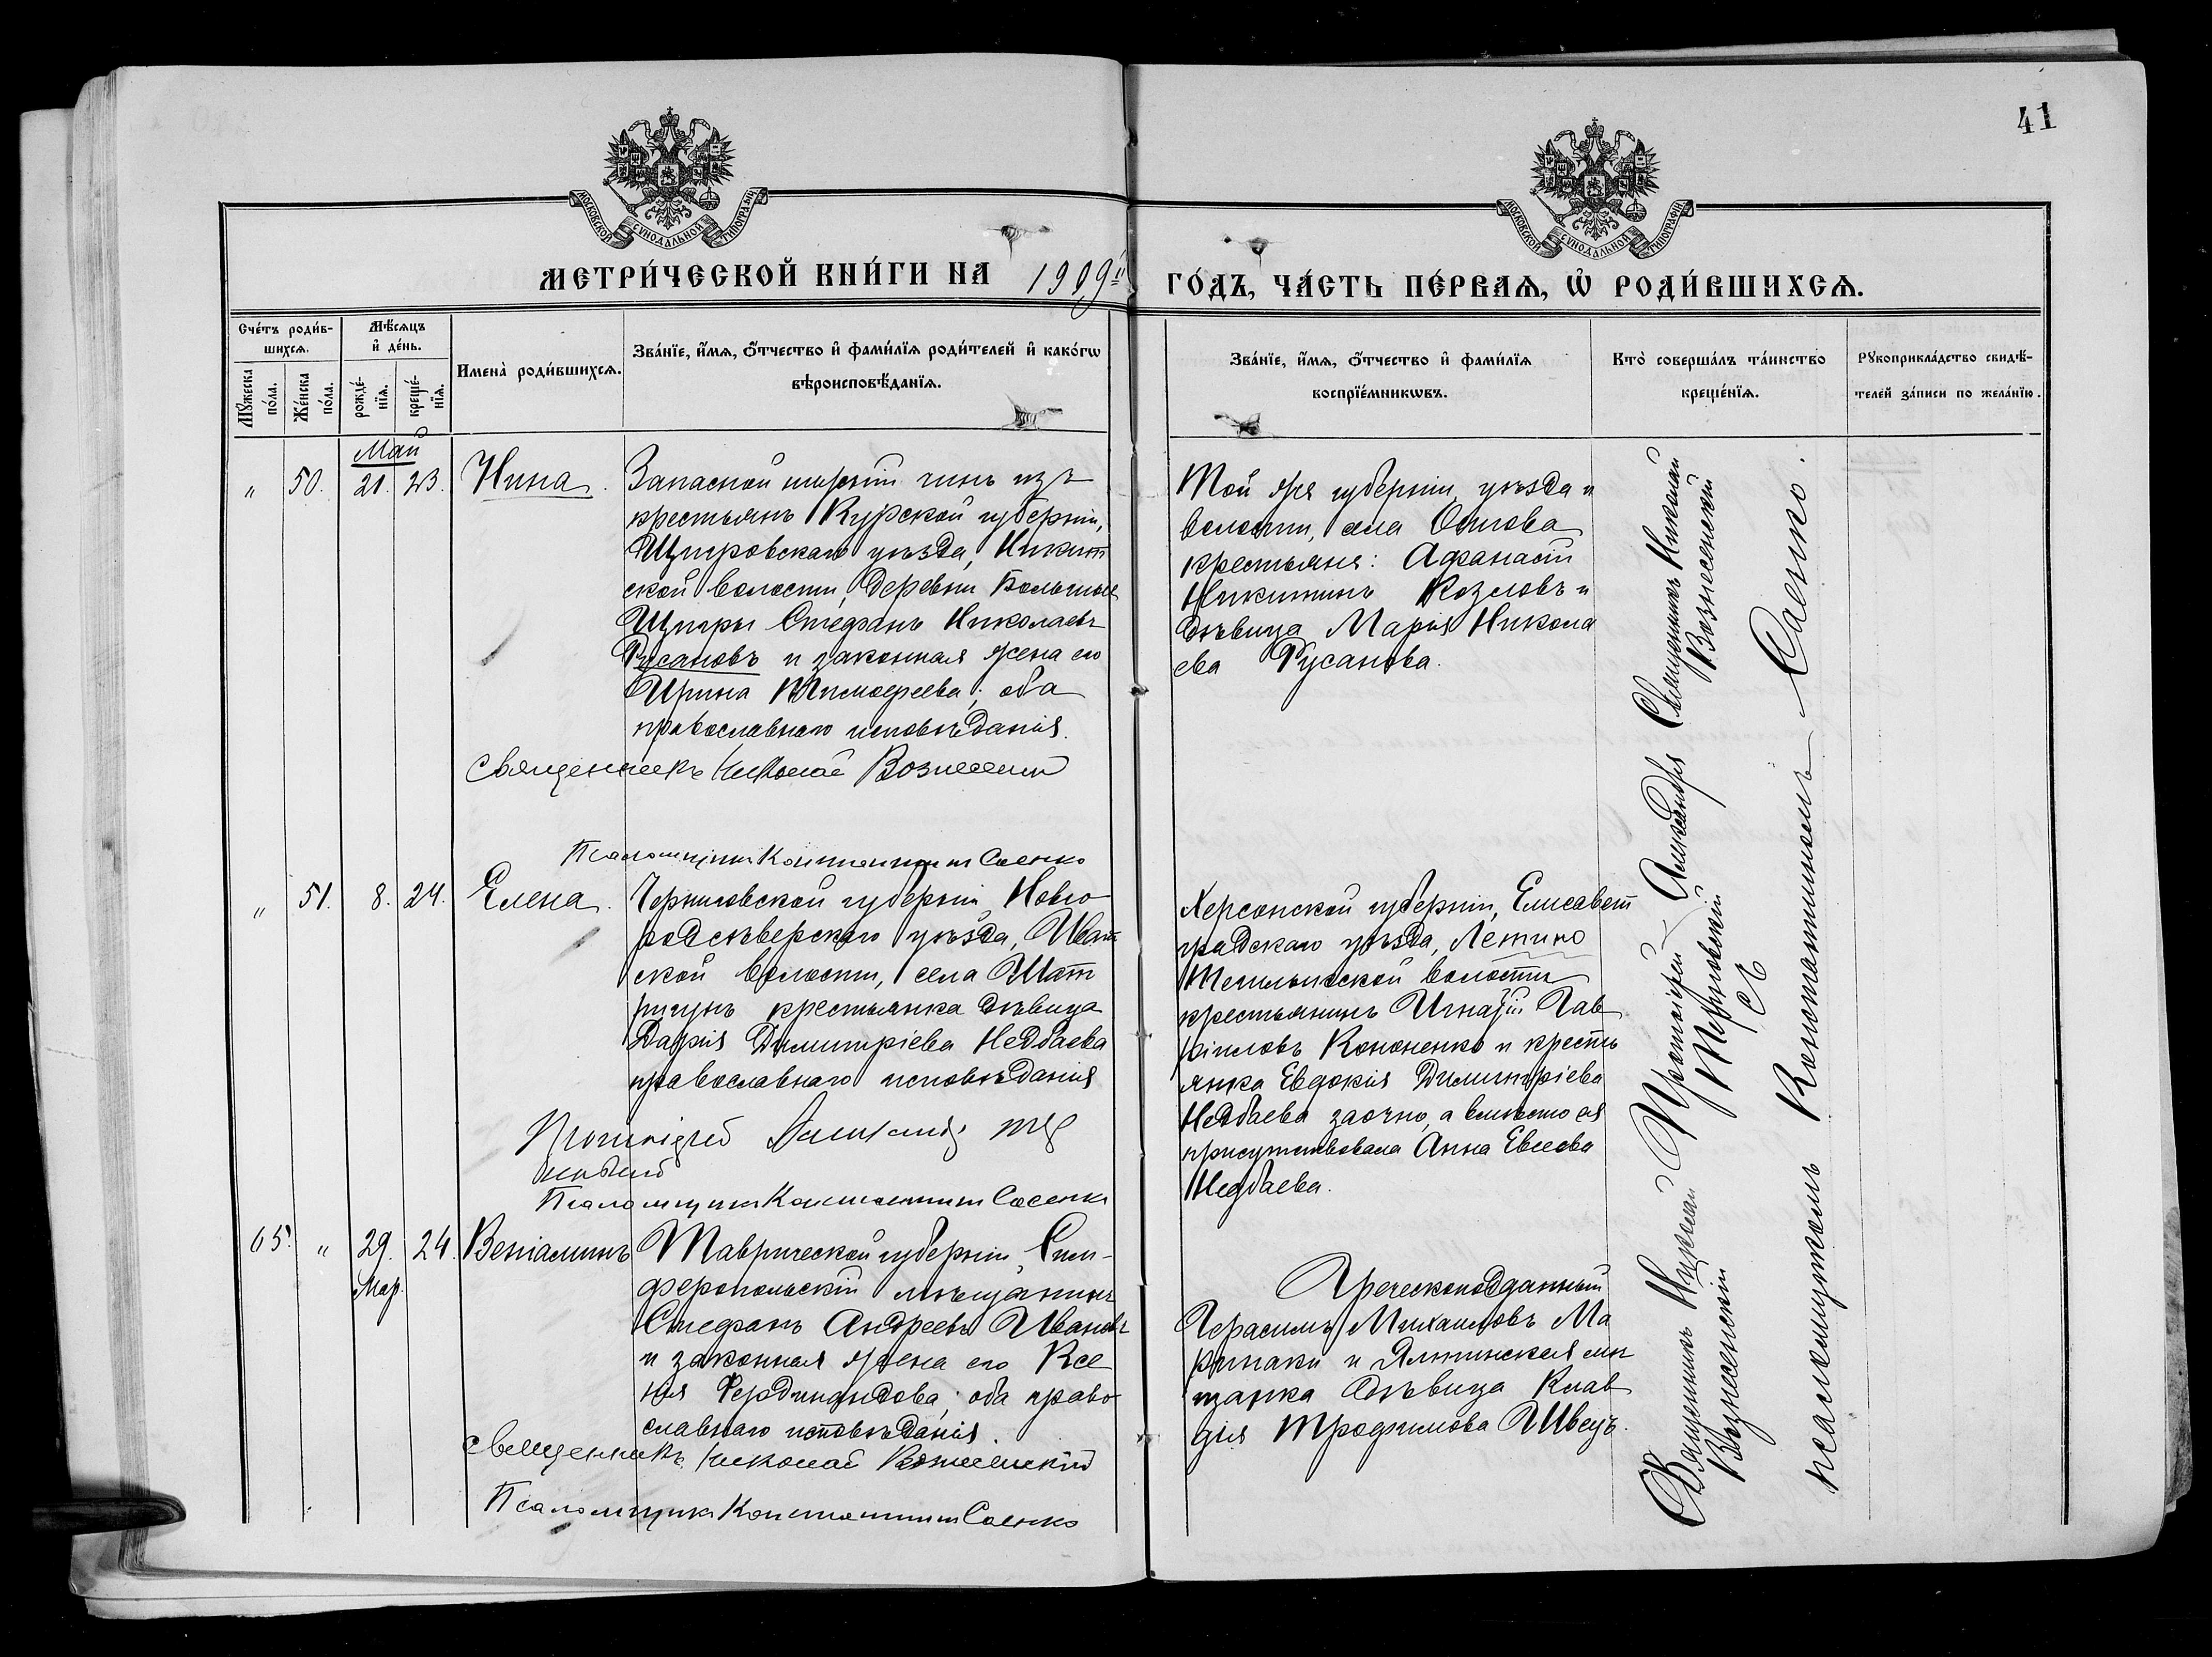 41
МОСКОВСКОЙ СѴНОДАЛЬНОЙ ТИПОГРАФІИ
МОСКОВСКОЙ СѴНОДАЛЬНОЙ ТИПОГРАФІИ
МЕТРИ́ЧЕСКОЙ КНИ́ГИ НА 1909й
ГО́ДЪ, ЧА́СТЬ ПЕ́РВАѦ, Ѡ҆ РОДИ́ВШИХСѦ.
Сче́тъ роди́в-
шихсѧ.
Мꙋ́жеска по́ла.
Же́нска по́ла.
Мѣ́сѧцъ
и҆ де́нь.
рожде́-
нїѧ.
креще́-
нїѧ.
Имена̀ роди́вшихсѧ.
Зва́нїе, и҆́мѧ, ѻ҆́тчество и҆ фами́лїѧ роди́телей и҆ како́гѡ
вѣроисповѣ́данїѧ.
Зва́нїе, и҆́мѧ, ѻ҆́тчество и҆ фами́лїѧ
воспрїе́мникѡвъ.
Кто̀ соверша́лъ та́инство
креще́нїѧ.
Рꙋкоприкла́дство свидѣ́-
телей за́писи по жела́нїю.
Май
" 50. 21. 23. Нина.
Запасной нижній чинъ изъ
крестьянъ Курской губерніи,
Щигровскаго уѣзда, Никит
ской волости, деревни Большіе
Щигры Стефанъ Николаевъ
Русановъ и законная жена его
Ирина Тимофеева; оба
православнаго исповѣданія.
Священникъ Николай Вознесенскій
Псаломщикъ Константинъ Саенко
Той же губерніи, уѣзда и
волости, села
крестьяне: Афанасій
Никитинъ Козловъ и
дѣвица Марія Никола
ева Русанова.
Священникъ Николай
Вознесенскій
" 51. 8. 24. Елена.
Черниговской губерніи, Новго
родсѣверскаго уѣзда,
ской волости, села Шат
рищъ крестьянка дѣвица
Дарія Димитріева Недбаева
православнаго исповѣданія
Протоіерей Александръ Тер
новскій
Псаломщикъ Константинъ Саенко
Херсонской губерніи, Елисавет
градскаго уѣзда,
волости
крестьянинъ Игнатій Гав
ріиловъ Кононенко и кресть
янка Евдокія Димитріева
Недбаева заочно, а вмѣсто ея
присутствовала Анна Евсеева
Недбаева.
Протоіерей Александръ
Терновскій
съ
65. " 29. 24. Веніаминъ
Мар.
Таврической губерніи, Сим-
феропольскій мѣщанинъ
Стефанъ Андреевъ Ивановъ
и законная жена его Ксе
нія Фердинандова; оба право
славнаго исповѣданія.
Священникъ Николай Вознесенскій
Псаломщикъ Константинъ Саенко
Греческоподданный
Герасимъ Михаиловъ Ма
ринаки и Ялтинская мѣ
щанка дѣвица Клав
дія Трофимова Швецъ.
Священникъ Николай
Вознесенскій
псаломщикомъ Константиномъ Саенко.